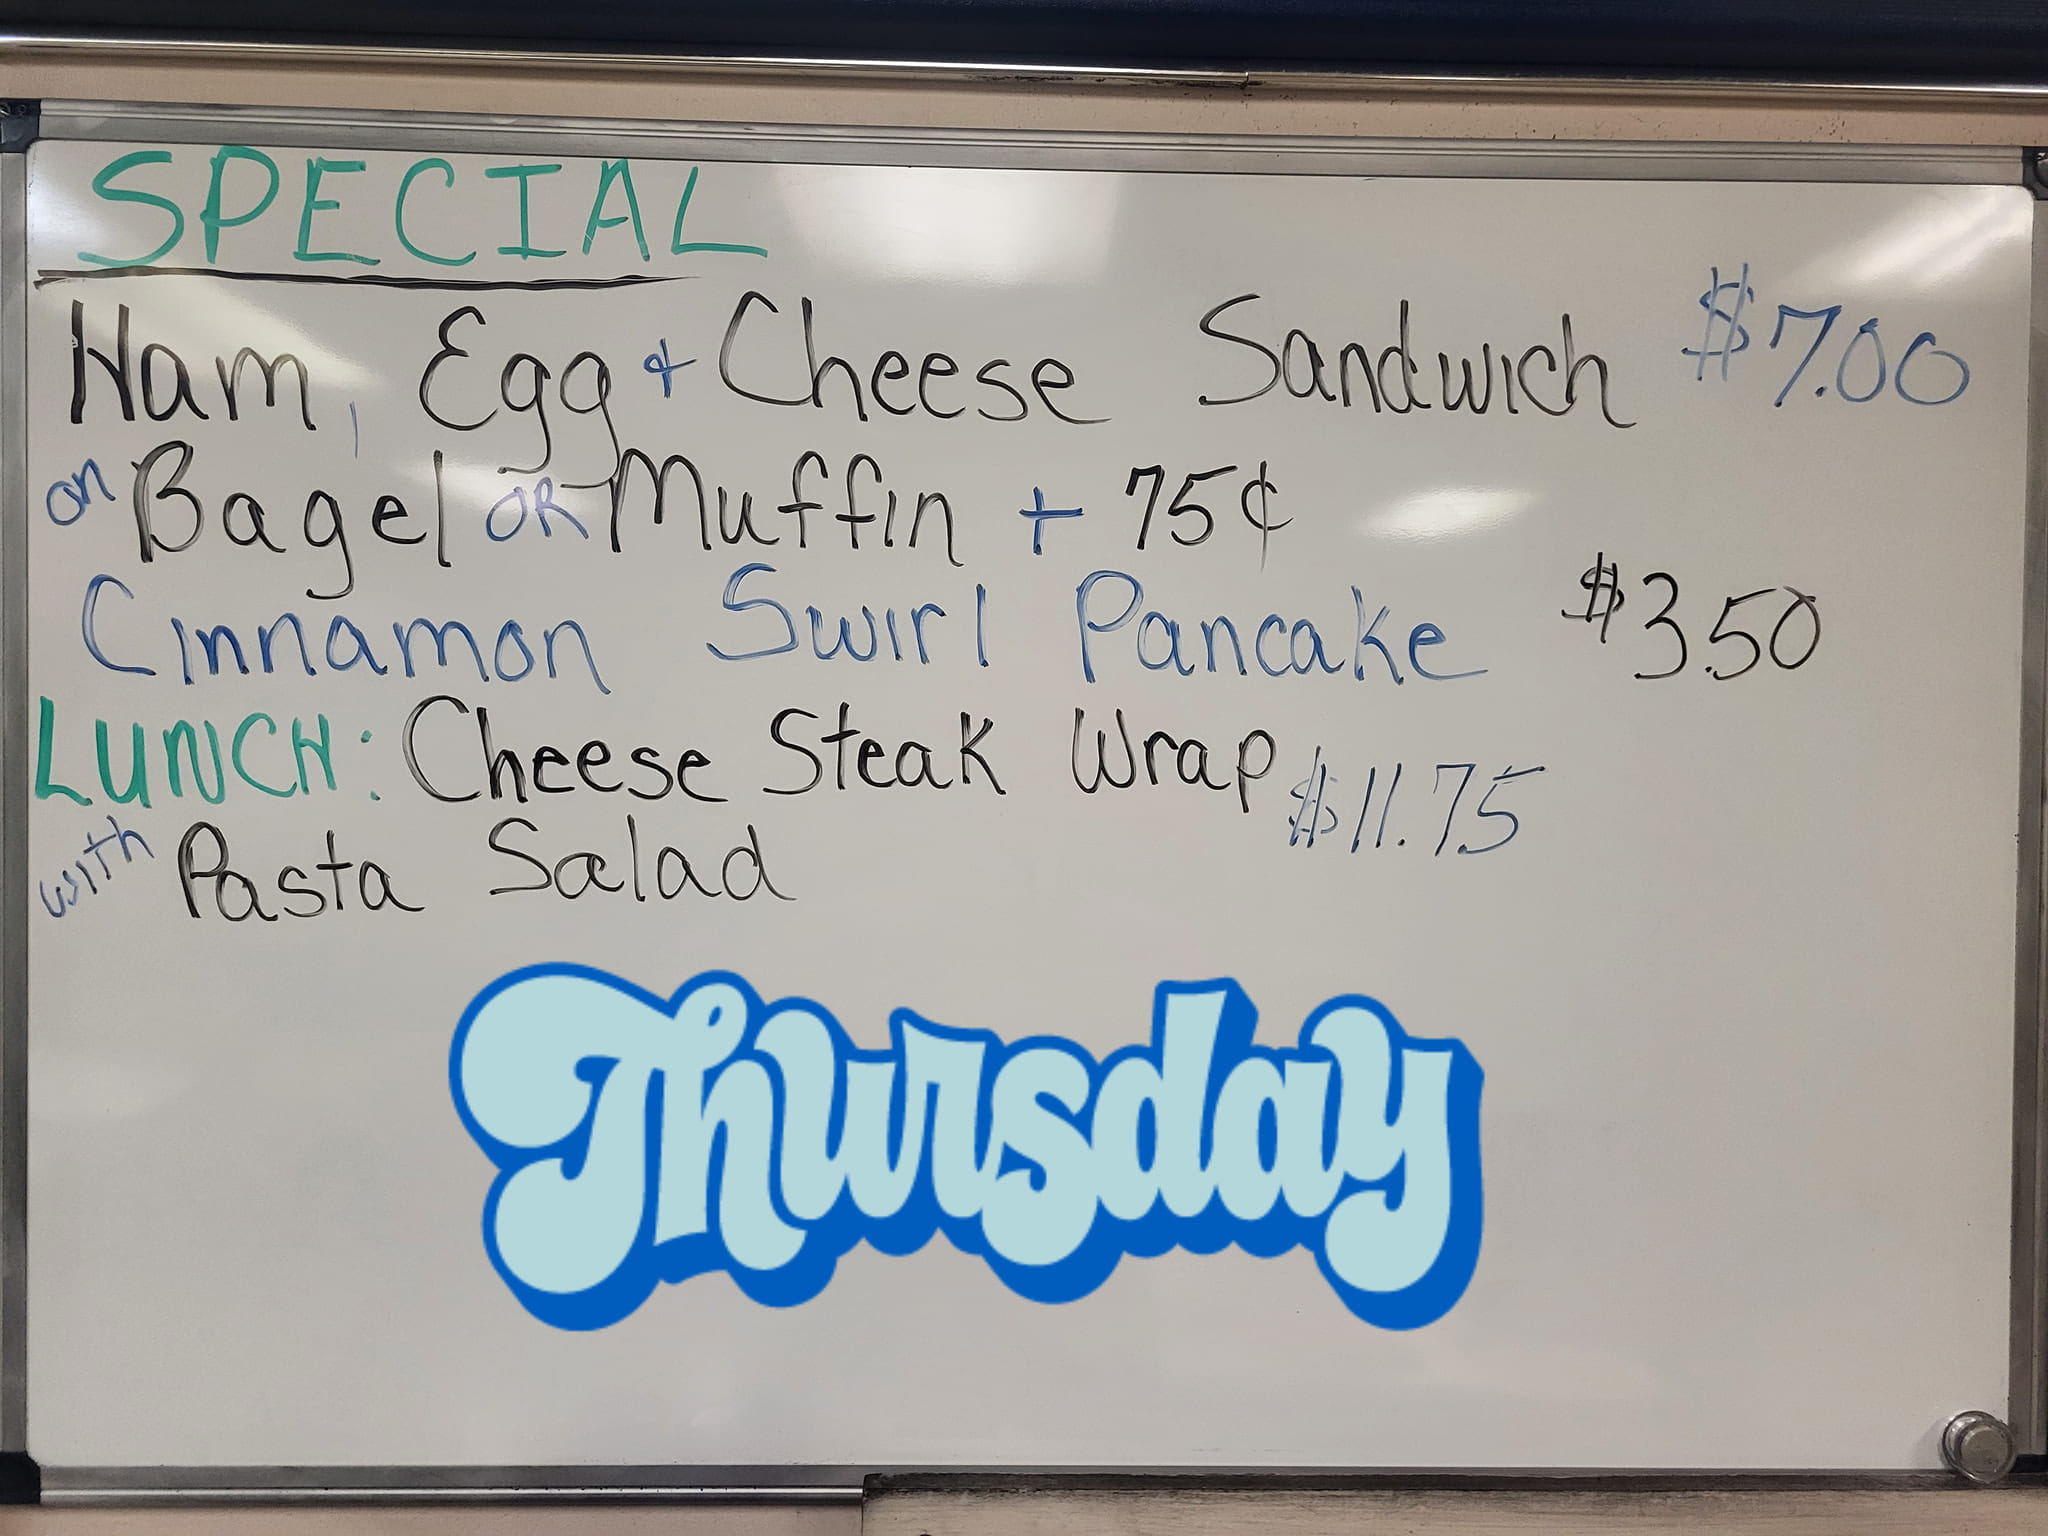 SPECIAL
Ham, Egg & Cheese Sandwich $7.00
on Bagel OR Muffin + 75¢
Cinnamon Swirl Pancake $3.50
LUNCH: Cheese Steak Wrap $11.75
with Pasta Salad
Thursday